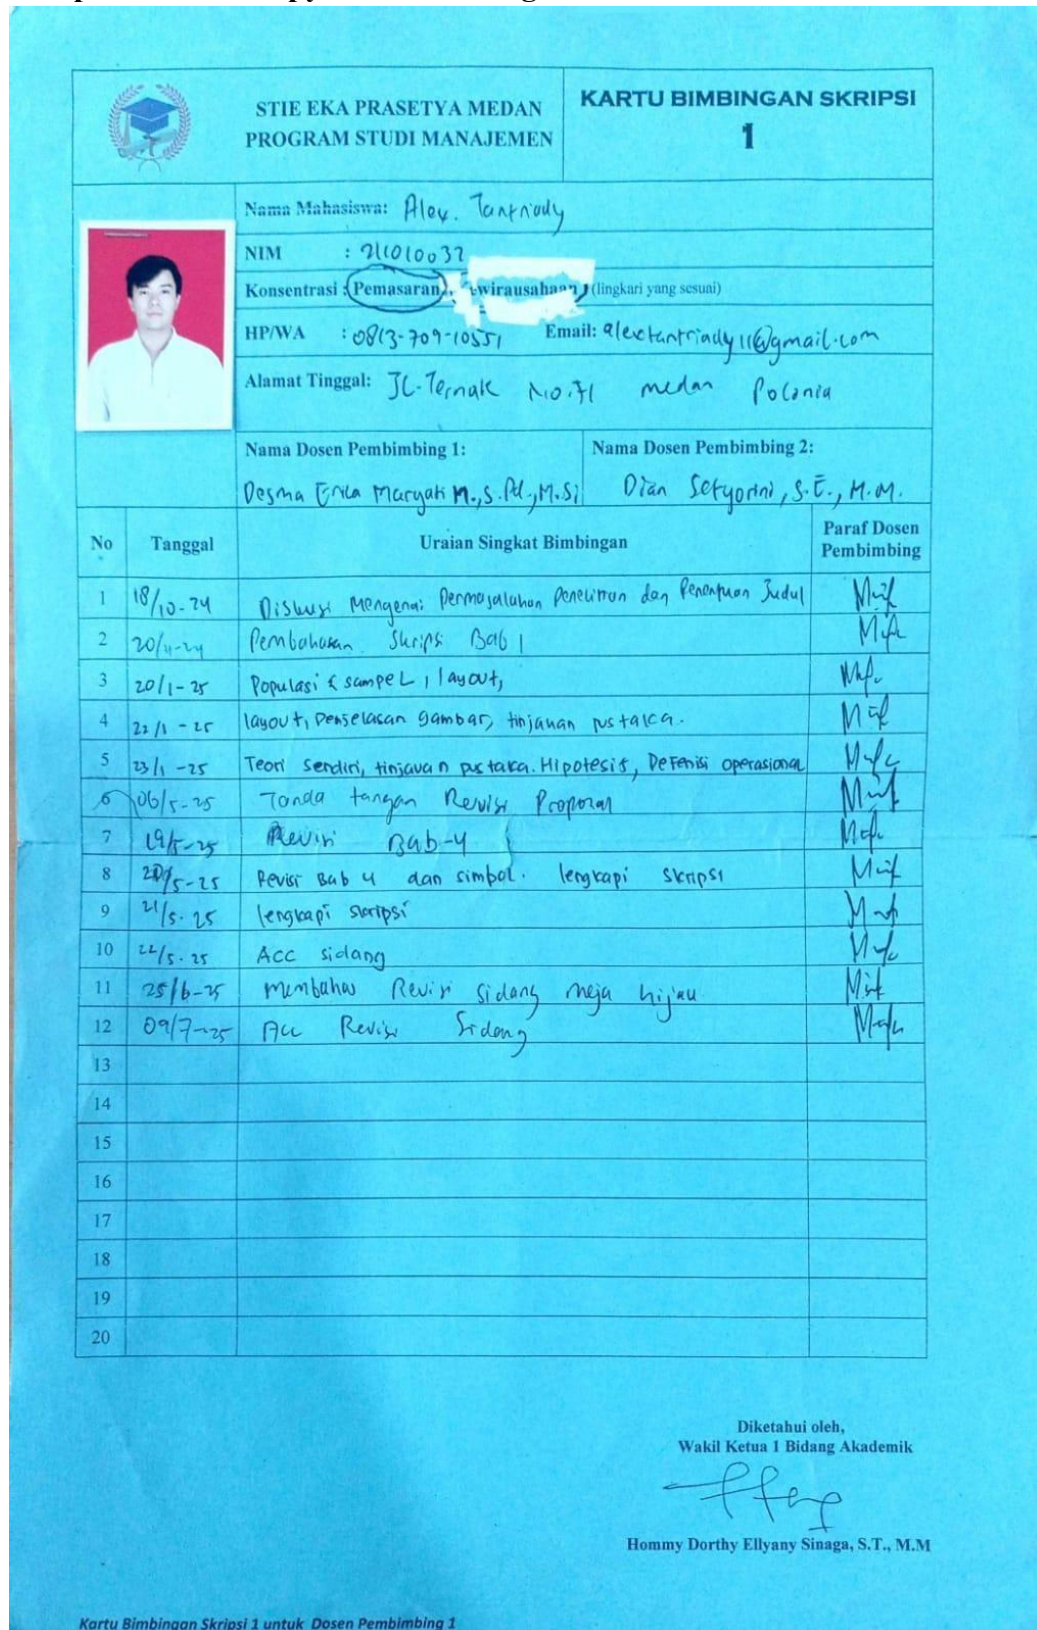 STIE EKA PRASETYA MEDAN
PROGRAM STUDI MANAJEMEN
KARTU BIMBINGAN SKRIPSI
1
Nama Mahasiswa: Alex. Tantriady
NIM : 211010032
Konsentrasi : Pemasaran, ewirausahaan (lingkari yang sesuai)
HP/WA : 0813-709-10551 Email: alextantriady11@gmail.com
Alamat Tinggal: JL. Ternak No.71 medan Polonia
Nama Dosen Pembimbing 1: Nama Dosen Pembimbing 2:
Desma Erica Maryati M., S.Pd., M.Si Dian Setyorini, S.E., M.M.
No Tanggal Uraian Singkat Bimbingan Paraf Dosen Pembimbing
1 18/10-24 Diskusi Mengenai Permasalahan Penelitian dan Penentuan Judul
2 20/11-24 Pembahasan Skripsi Bab 1
3 20/1-25 Populasi & sampel, layout,
4 22/1-25 layout, Penjelasan gambar, tinjauan pustaka.
5 23/1-25 Teori sendiri, tinjauan pustaka. Hipotesis, Defenisi operasional
6 06/5-25 Tanda tangan Revisi Proposal
7 19/5-25 Revisi Bab-4
8 20/5-25 Revisi Bab 4 dan simpol. lengkapi skripsi
9 21/5-25 lengkapi skripsi
10 22/5-25 ACC sidang
11 25/6-25 Membahas Revisi Sidang meja hijau
12 09/7-25 Acc Revisi Sidang
13
14
15
16
17
18
19
20
Diketahui oleh,
Wakil Ketua 1 Bidang Akademik
Hommy Dorthy Ellyany Sinaga, S.T., M.M
Kartu Bimbingan Skripsi 1 untuk Dosen Pembimbing 1